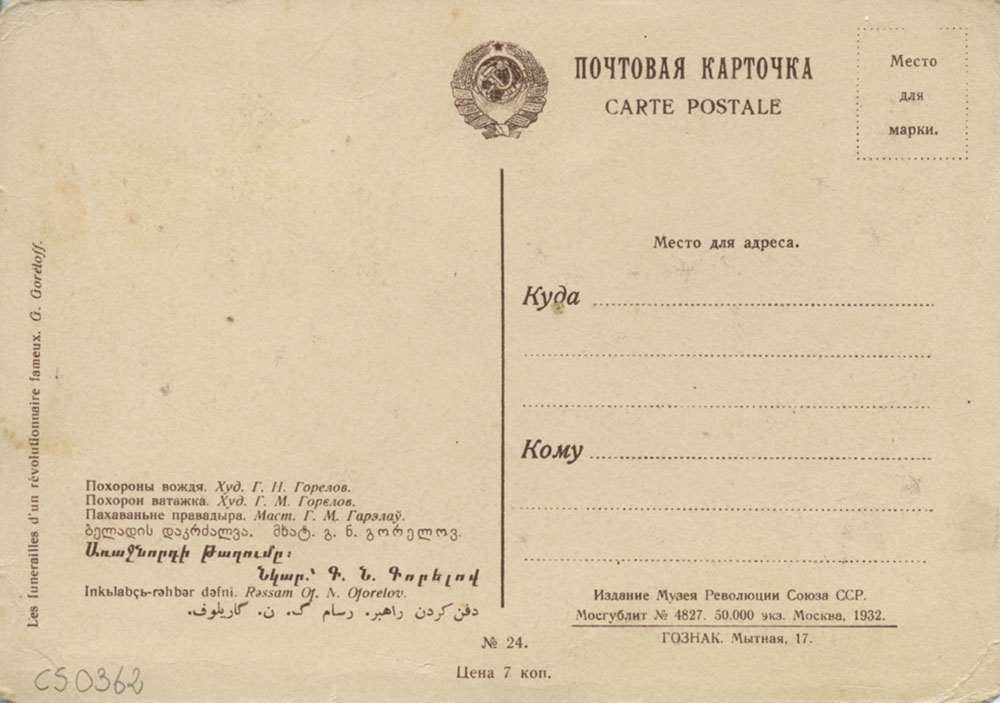 ПОЧТОВАЯ КАРТОЧКА
CARTE POSTALE
Место
для
марки.
Место для адреса.
Куда
Кому
Les funerailles d'un révolutionnaire fameux. G. Goréloff.
Похороны вождя. Худ. Г. Н. Горелов.
Похорон ватажка. Худ. Г. М. Горєлов.
Пахаваньне правадыра. Маст. Г. М. Гарэлаў.
ბელადის დაკრძალვა. მხატ. გ. ნ. გორელოვ.
Առաջնորդի Թաղումը:
Նկար.՝ Գ. Ն. Գորելով
Inkьlabçь-rəhbər dəfni. Rəssam Of. N. Oforelov.
دفن کردن راهبر. رسام گ. ن. گاریلوف.
Издание Музея Революции Союза ССР.
Мосгублит № 4827. 50.000 экз. Москва, 1932.
ГОЗНАК. Мытная, 17.
№ 24.
Цена 7 коп.
CS0362